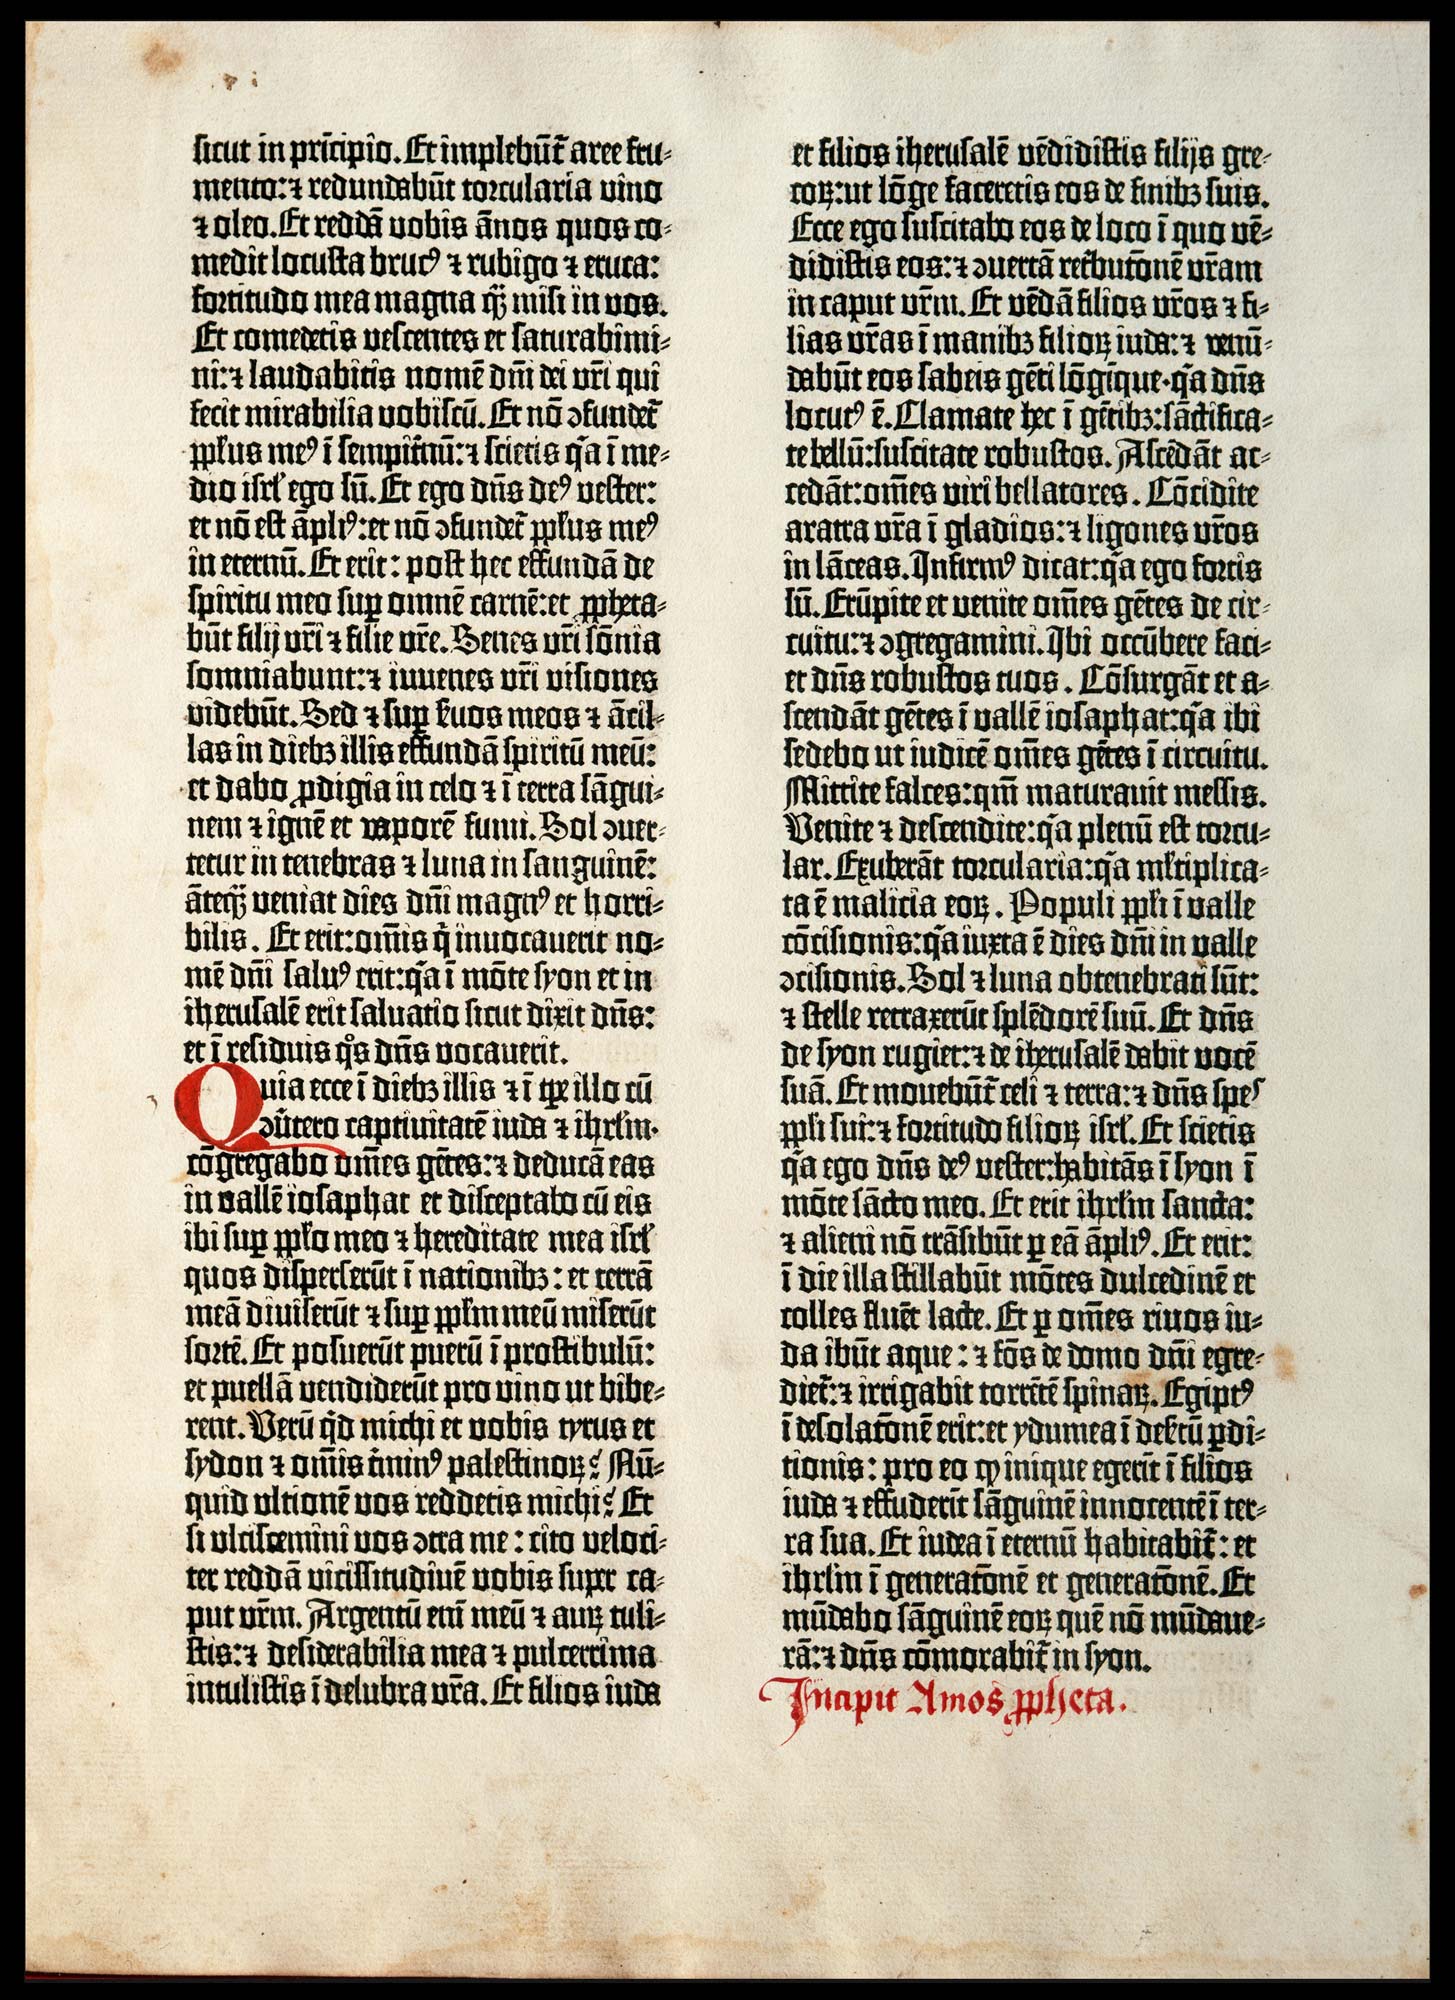 sicut in prīcipio. Et implebūt̄ aree fru-
mento: ⁊ redundabūt torcularia vino
⁊ oleo. Et reddā vobis ānos quos co-
medit locusta brucꝰ ⁊ rubigo ⁊ eruca:
fortitudo mea magna quā misi in vos.
Et comedetis vescentes et saturabimi-
ni: ⁊ laudabitis nomē dn̄i dei vr̄i qui
fecit mirabilia vobiscū. Et nō ↄfundet̄
pp̄lus meꝰ ī sempit̄nū: ⁊ scietis qā ī me-
dio isrl̄ ego sū. Et ego dn̄s deꝰ vester:
et nō est āpliꝰ: et nō ↄfundet̄ pp̄lus meꝰ
in eternū. Et erit: post hec effundā de
spiritu meo suꝑ omnē carnē: et ꝓpheta-
būt filij vr̄i ⁊ filie vr̄e. Senes vr̄i sōnia
somniabunt: ⁊ iuvenes vr̄i visiones
videbūt. Sed ⁊ suꝑ s̄vos meos ⁊ ācil-
las in diebꝫ illis effundā spiritū meū:
et dabo ꝓdigia in celo ⁊ ī terra sāgui-
nem ⁊ ignē et vaporē fumi. Sol ↄver-
tetur in tenebras ⁊ luna in sanguinē:
āteq̄ꝫ veniat dies dn̄i magnꝰ et horri-
bilis. Et erit: om̄is q̄ invocaverit no-
mē dn̄i salvꝰ erit: qā ī mōte syon et in
iherusalē erit salvatio sicut dixit dn̄s:
et ī residuis qͦs dn̄s vocaverit.
Quia ecce ī diebꝫ illis ⁊ ī tꝑe illo cū
ↄv̄tero captivitatē iuda ⁊ ihrl̄m·
cōgregabo om̄es gētes: ⁊ deducā eas
in vallē iosaphat et disceptabo cū eis
ibi suꝑ pp̄lo meo ⁊ hereditate mea isrl̄
quos disperserūt ī nationibꝫ: et terrā
meā diviserūt ⁊ suꝑ pp̄lm meū miserūt
sortē. Et posuerūt puerū ī prostibulū:
et puellā vendiderūt pro vino ut bibe-
rent. Verū qd̄ michi et vobis tyrus et
sydon ⁊ om̄is t̄minꝰ palestinoꝝ? Nū-
quid ultionē vos reddetis michi? Et
si ulciscemini vos ↄtra me: cito veloci-
ter reddā vicissitudinē vobis super ca-
put vr̄m. Argentū eni᷒ meū ⁊ auꝝ tuli-
stis: ⁊ desiderabilia mea ⁊ pulcerrima
intulistis ī delubra vr̄a. Et filios iuda
et filios iherusalē vēdidistis filijs gre-
coꝝ: ut lōge faceretis eos de finibꝫ suis.
Ecce ego suscitabo eos de loco ī quo vē-
didistis eos: ⁊ ↄvertā ret̄butōnē vr̄am
in caput vr̄m. Et vēdā filios vr̄os ⁊ fi-
lias vr̄as ī manibꝫ filioꝝ iuda: ⁊ venū-
dabūt eos sabeis gēti lōgīque· qā dn̄s
locutꝰ ē. Clamate hec ī gētibꝫ: sāctifica-
te bellū: suscitate robustos. Ascēdāt ac-
cedāt: om̄es viri bellatores. Cōcidite
aratra vr̄a ī gladios: ⁊ ligones vr̄os
in lāceas. Infirmꝰ dicat: qā ego fortis
sū. Erūpite et venite om̄es gētes de cir-
cuitu: ⁊ ↄgregamini. Ibi occūbere faci-
et dn̄s robustos tuos. Cōsurgāt et a-
scendāt gētes ī vallē iosaphat: qā ibi
sedebo ut iudicē om̄es gētes ī circuitu.
Mittite falces: qm̄ maturavit messis.
Venite ⁊ descendite: qā plenū est torcu-
lar. Exuberāt torcularia: qā ml̄tiplica-
ta ē malicia eoꝝ. Populi pp̄li ī valle
cōcisionis: qā iuxta ē dies dn̄i in valle
ↄcisionis. Sol ⁊ luna obtenebrati sūt:
⁊ stelle retraxerūt splēdorē suū. Et dn̄s
de syon rugiet: ⁊ de iherusalē dabit vocē
suā. Et movebūt̄ celi ⁊ terra: ⁊ dn̄s speꝰ
pp̄li sui: ⁊ fortitudo filioꝝ isrl̄. Et scietis
qā ego dn̄s deꝰ vester: habitās ī syon ī
mōte sācto meo. Et erit ihrl̄m sancta:
⁊ alieni nō trāsibūt ꝑ eā āpliꝰ. Et erit:
ī die illa stillabūt mōtes dulcedinē et
colles fluēt lacte. Et ꝑ om̄es rivos iu-
da ibūt aque: ⁊ fōs de domo dn̄i egre-
diet̄: ⁊ irrigabit torrētē spinaꝝ. Egiptꝰ
ī desolatōnē erit: et ydumea ī des̄tū ꝑdi-
tionis: pro eo ꝙ inique egerīt ī filios
iuda ⁊ effuderīt sāguinē innocentē ī ter-
ra sua. Et iudea ī eternū habitabit̄: et
ihrl̄m ī generatōnē et generatōnē. Et
mūdabo sāguinē eoꝝ quē nō mūdave-
rā: ⁊ dn̄s cōmorabit̄ in syon.
Incipit Amos ꝓpheta.